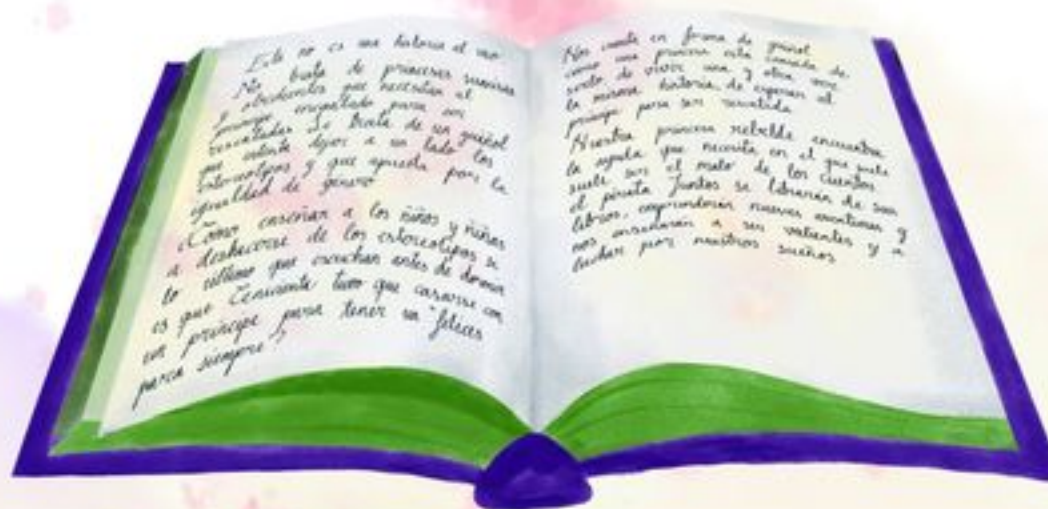 Este no es una historia al uso
No trata de princesas sumisas
y obedientes que necesitan al
príncipe para ser
rescatadas Se trata de un guiñol
que intenta dejar a un lado los
estereotipos y que apueda por la
igualdad de género
¿Cómo enseñar a los niños y niñas
a deshacerse de los estereotipos si
lo último que escuchan antes de dormir
es que Cenicienta tuvo que casarse con
un príncipe para tener un "felices
para siempre"?
Nos cuenta en forma de guiñol
como una princesa esta cansada de
de vivir una y otra vez
la misma historia, de esperar al
príncipe para ser rescatida
Nuestra princesa rebelde encuentra
la ayuda que necesita en el que suele
suele ser el malo de los cuentos
el pirata Juntos se librarán de sus
libros, emprenderán nuevas aventuras y
nos enseñarán a ser valientes y a
luchar por nuestros sueños